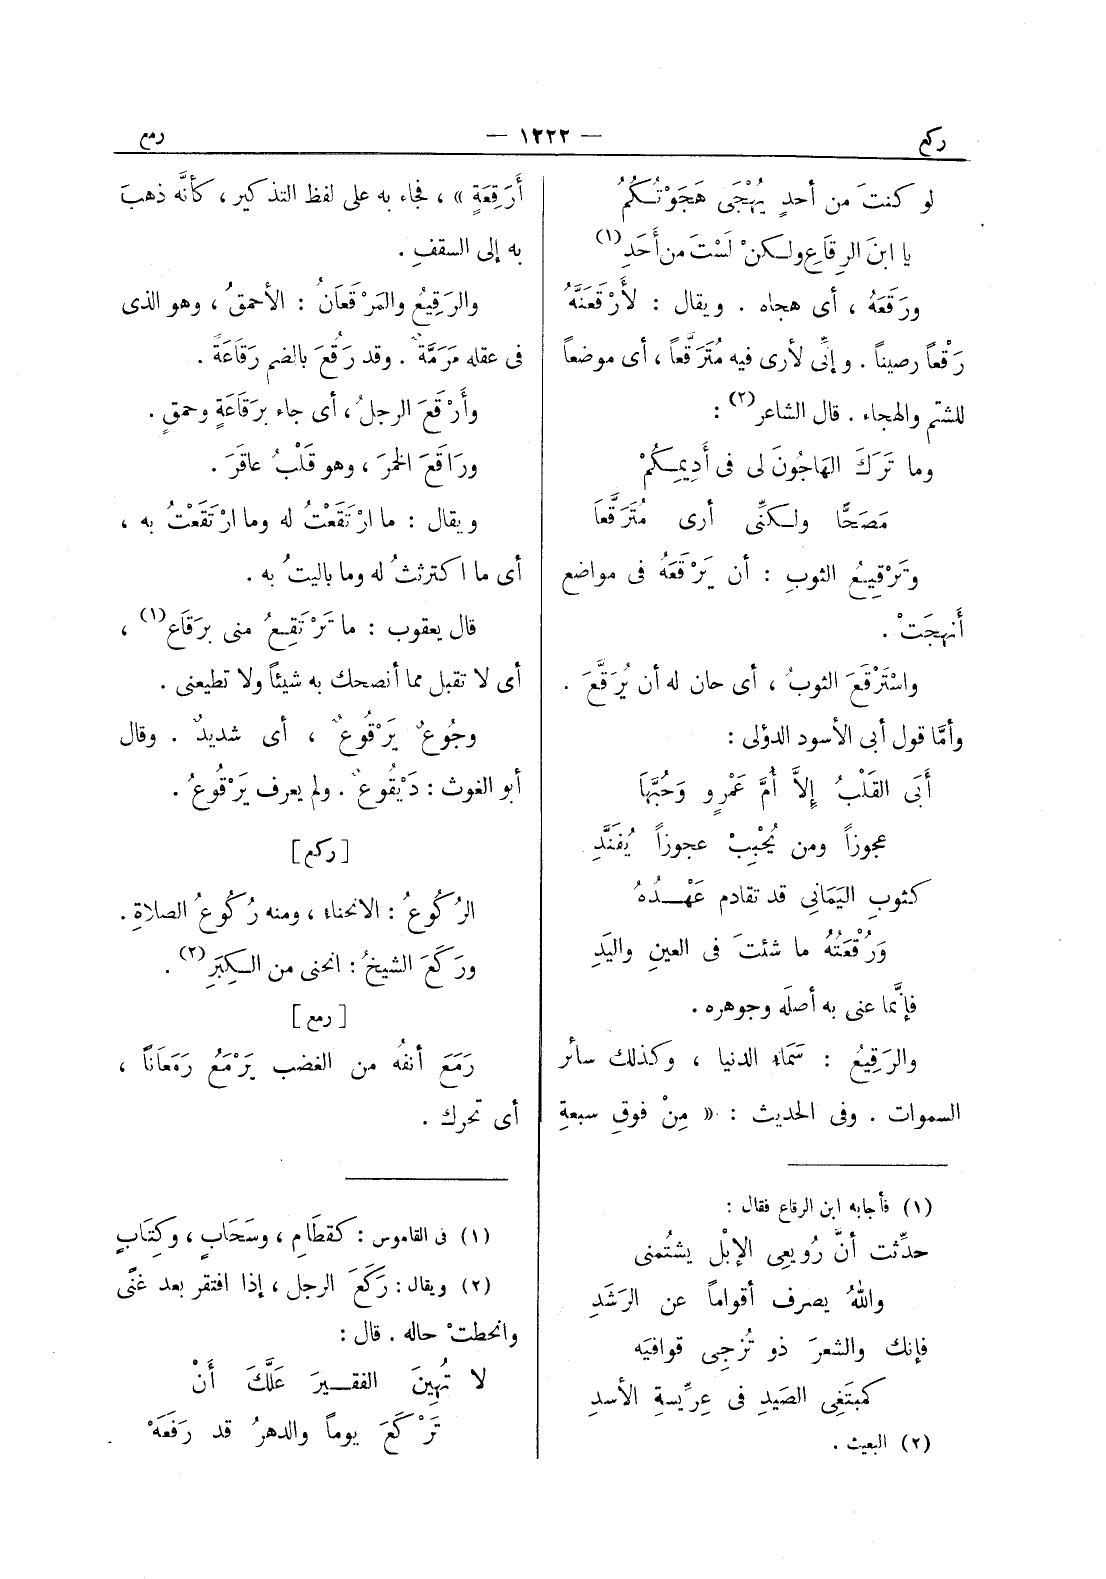 ركع
— ١٢٢٢ —
رمع
لو كنتَ من أحدٍ يُهْجَى هَجَوْتُكُمُ
يا ابنَ الرِقَاعِ ولكنْ لَسْتَ من أَحَدِ (١)
ورَقَعَهُ ، أى هجاه . ويقال : لأَرْقَعَنَّهُ
رَقْعاً رصيناً . وإنِّى لأرى فيه مُتَرَقَّعاً ، أى موضعاً
للشتم والهجاء . قال الشاعر (٢) :
وما تَرَكَ الهَاجُونَ لى فى أَدِيمِكُمْ
مَصَحًّا ولكنِّى أرى مُتَرَقَّعَا
وتَرْقِيعُ الثوبِ : أن يَرْقَعَهُ فى مواضع
أَنهجَتْ .
واسْتَرْقَعَ الثوبُ ، أى حان له أن يُرَقَّعَ .
وأمَّا قول أبى الأسود الدؤلى :
أَبَى القَلْبُ إلاَّ أُمَّ عَمْرٍو وَحُبَّهَا
عجوزاً ومن يُحْبِبْ عجوزاً يُفَنَّدِ
كثوبِ اليَمَانِي قد تقادم عَهْدُهُ
وَرُقْعَتُهُ ما شئتَ فى العينِ واليَدِ
فإنَّما عنى به أصلَه وجوهره .
والرَقِيعُ : سَمَاء الدنيا ، وكذلك سائر
السموات . وفى الحديث : « مِنْ فوقِ سبعةِ
(١) فأجابه ابن الرقاع فقال :
حدِّثت أنَّ رُويعى الإبْل يشتُمنى
واللهُ يصرف أقواماً عن الرَشَدِ
فإنك والشعرَ ذو تُزجِى قوافيَه
كمبتَغِى الصَيدِ فى عِرِّيسةِ الأسدِ
(٢) البعيث .
أَرَقِعَةٍ » ، فجاء به على لفظ التذكير ، كأنَّه ذهبَ
به إلى السقفِ .
والرَقِيعُ والمَرْقَعَانُ : الأحمقُ ، وهو الذى
فى عقله مَرَمَّةٌ . وقد رَقُعَ بالضم رَقَاعَةً .
وأَرْقَعَ الرجلُ ، أى جاء برَقَاعَةٍ وحمقٍ .
ورَاقَعَ الخمرَ ، وهو قَلْبُ عاقَرَ .
ويقال : ما ارْتَقَعْتُ له وما ارْتَقَعْتُ به ،
أى ما اكترثتُ له وما باليتُ به .
قال يعقوب : ما تَرْتَقِعُ منى برَقَاعِ (١) ،
أى لا تقبل مما أنصحك به شيئاً ولا تطيعنى .
وجُوعٌ يَرْقُوعٌ ، أى شديدٌ . وقال
أبو الغوث : دَيْقُوعٌ . ولم يعرف يَرْقُوعُ .
[ ركع ]
الرُكُوعُ : الانحناء ، ومنه رُكُوعُ الصلاةِ .
ورَكَعَ الشيخُ : انحنى من الكِبَرِ (٢) .
[ رمع ]
رَمَعَ أنفُه من الغضب يَرْمَعُ رَمَعَاناً ،
أى تحرك .
(١) فى القاموس : كقَطَامِ ، وسَحَابٍ ، وكِتَابٍ
(٢) ويقال : رَكَعَ الرجل ، إذا افتقر بعد غنًى
وانحطتْ حاله . قال :
لا تُهِينَ الفقيرَ عَلَّكَ أَنْ
تَرْكَعَ يوماً والدهرُ قد رَفَعَهْ